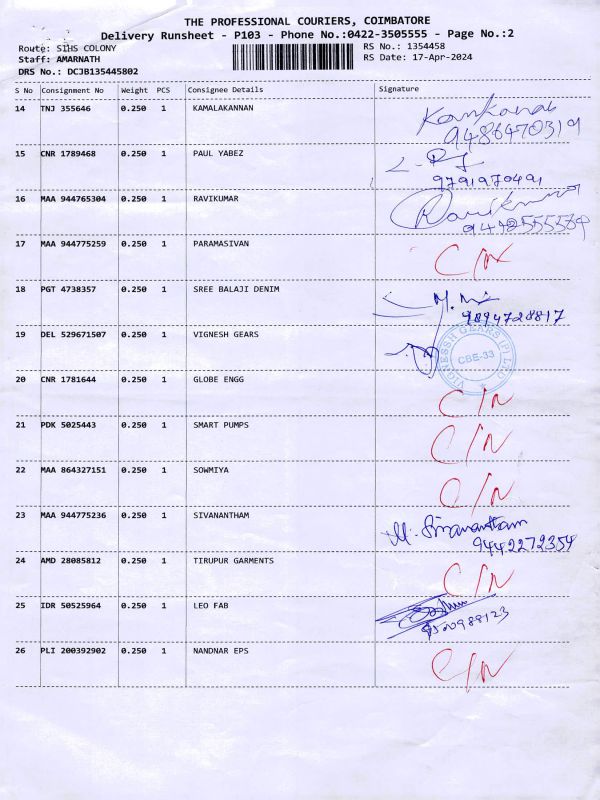 THE PROFESSIONAL COURIERS, COIMBATORE
Delivery Runsheet - P103 - Phone No.:0422-3505555 - Page No.:2
Route: SIHS COLONY RS No.: 1354458
Staff: AMARNATH RS Date: 17-Apr-2024
DRS No.: DCJB135445802
S No Consignment No Weight PCS Consignee Details Signature
14 TNJ 355646 0.250 1 KAMALAKANNAN
9486470319
15 CNR 1789468 0.250 1 PAUL YABEZ
9791970491
16 MAA 944765304 0.250 1 RAVIKUMAR Ravikumar
17 MAA 944775259 0.250 1 PARAMASIVAN C/N
18 PGT 4738357 0.250 1 SREE BALAJI DENIM
9894728817
19 DEL 529671507 0.250 1 VIGNESH GEARS
VIGNESSH GEARS (P) LTD
CBE-33
20 CNR 1781644 0.250 1 GLOBE ENGG C/N
21 PDK 5025443 0.250 1 SMART PUMPS C/N
22 MAA 864327151 0.250 1 SOWMIYA C/N
23 MAA 944775236 0.250 1 SIVANANTHAM M. Sivanantham
9442272354
24 AMD 28085812 0.250 1 TIRUPUR GARMENTS C/N
25 IDR 50525964 0.250 1 LEO FAB
26 PLI 200392902 0.250 1 NANDNAR EPS C/N